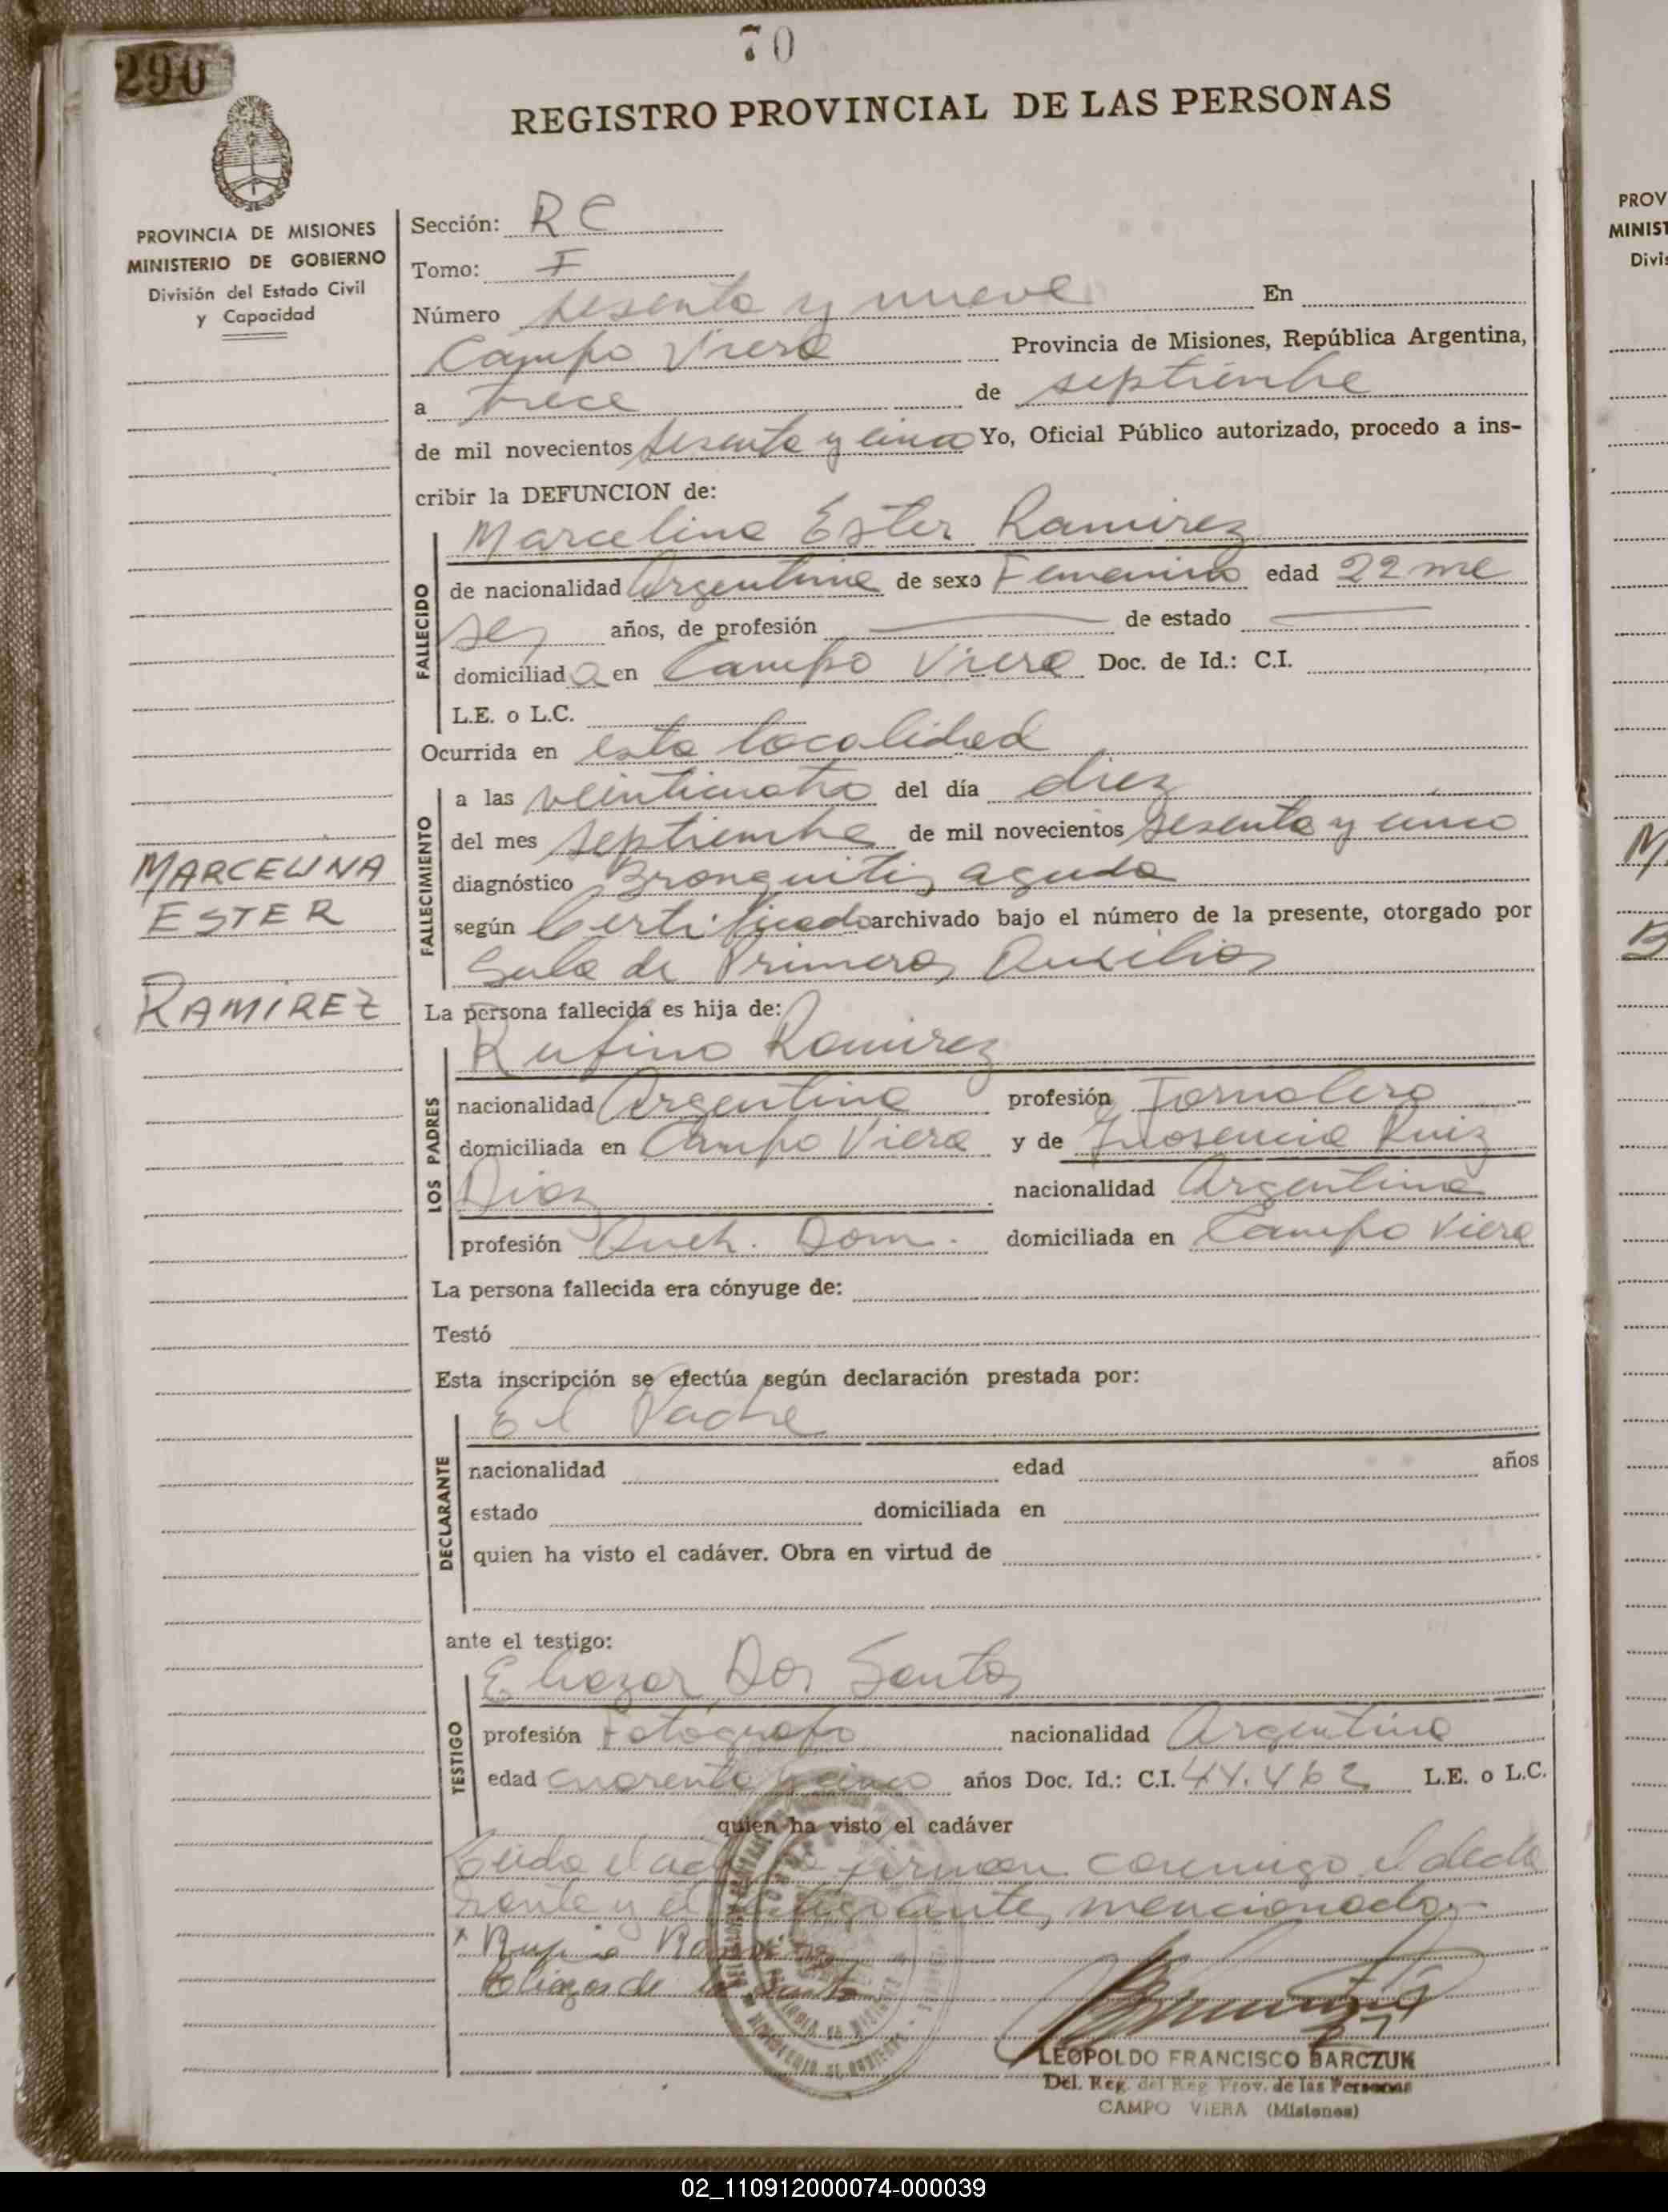 290
70
REGISTRO PROVINCIAL DE LAS PERSONAS
PROVINCIA DE MISIONES
MINISTERIO DE GOBIERNO
División del Estado Civil
y Capacidad
Sección: R C
Tomo: I
Número sesenta y nueve En
Campo Viera Provincia de Misiones, República Argentina,
a trece de septiembre
de mil novecientos sesenta y cinco Yo, Oficial Público autorizado, procedo a ins-
cribir la DEFUNCION de:
Marcelina Ester Ramirez
FALLECIDO
de nacionalidad Argentina de sexo Femenino edad 22 me
ses años, de profesión de estado
domiciliada en Campo Viera Doc. de Id.: C.I.
L.E. o L.C.
Ocurrida en esta localidad
FALLECIMIENTO
a las veinticuatro del día diez
del mes septiembre de mil novecientos sesenta y cinco
diagnóstico Bronquitis aguda
según Certificado archivado bajo el número de la presente, otorgado por
Sala de Primeros Auxilios
MARCELINA
ESTER
RAMIREZ
La persona fallecida es hija de:
Rufino Ramirez
LOS PADRES
nacionalidad Argentina profesión Jornalero
domiciliada en Campo Viera y de Inosencia Ruiz
Diaz nacionalidad Argentina
profesión Queh. Dom. domiciliada en Campo Viera
La persona fallecida era cónyuge de:
Testó
Esta inscripción se efectúa según declaración prestada por:
El Padre
DECLARANTE
nacionalidad edad años
estado domiciliada en
quien ha visto el cadáver. Obra en virtud de
ante el testigo:
Eliazar Dos Santos
TESTIGO
profesión Fotógrafo nacionalidad Argentina
edad cuarenta y cinco años Doc. Id.: C.I. 44.462 L.E. o L.C.
quien ha visto el cadáver
Leida el acta firman conmigo el decla
rante y el testigo antes mencionados
LEOPOLDO FRANCISCO BARCZUK
Del. Reg. del Reg Prov. de las Personas
CAMPO VIERA (Misiones)
PROV
MINIST
Divis
M
B
02_110912000074-000039